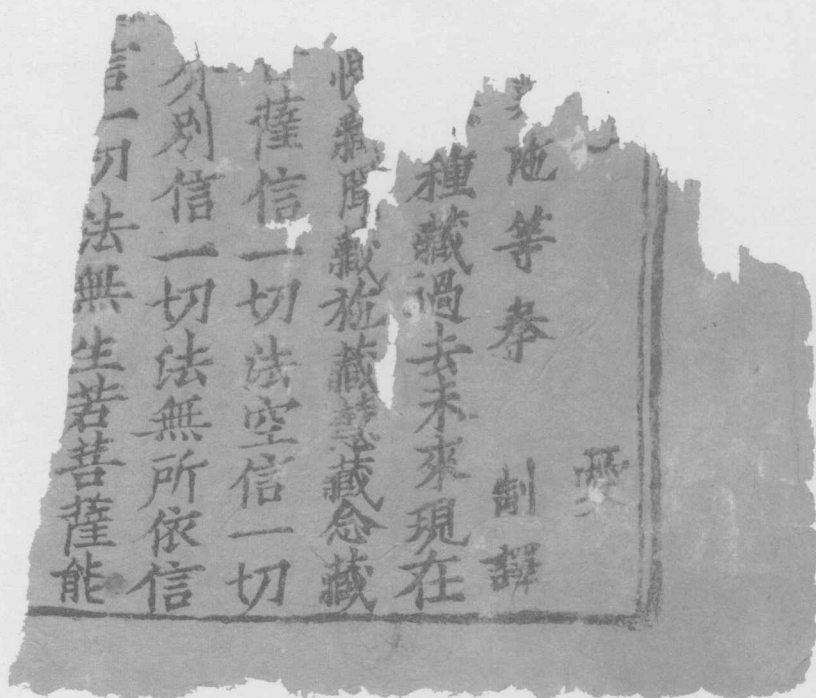 愛
陁等奉 制譯
種藏過去未來現在
愧藏聞藏施藏慧藏念藏
薩信一切法空信一切
分別信一切法無所依信
信一切法無生若菩薩能